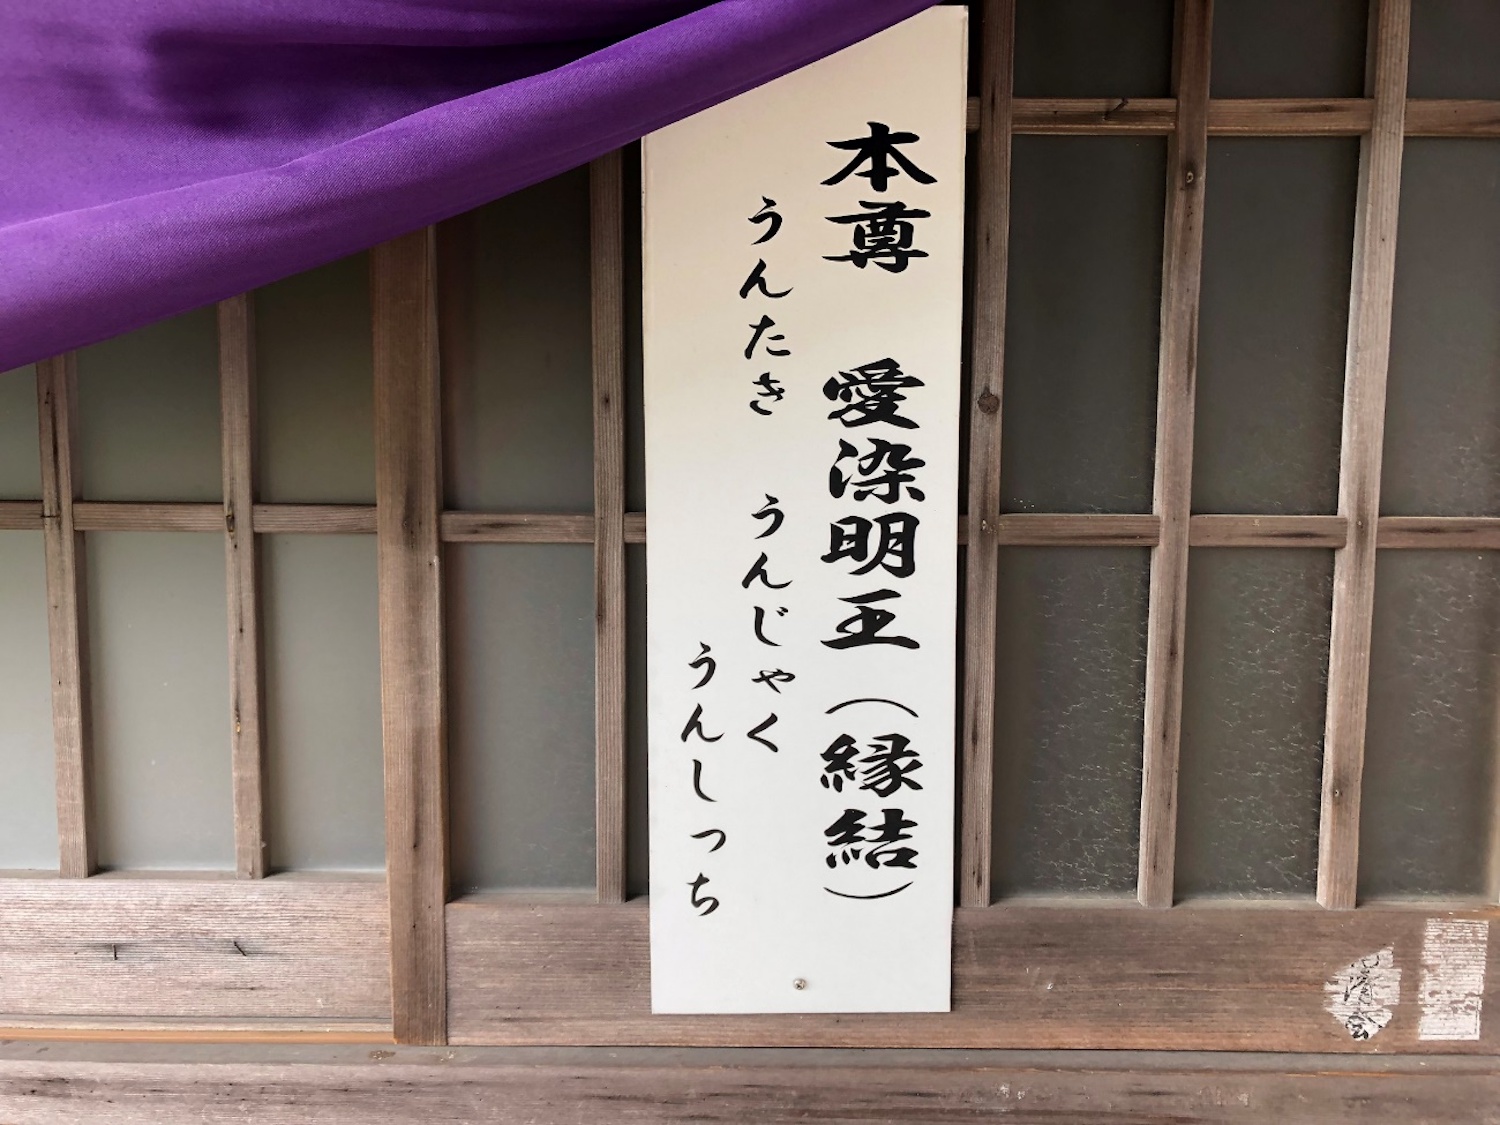 本尊　愛染明王（縁結）
うんたき　うんじゃく
うんしっち